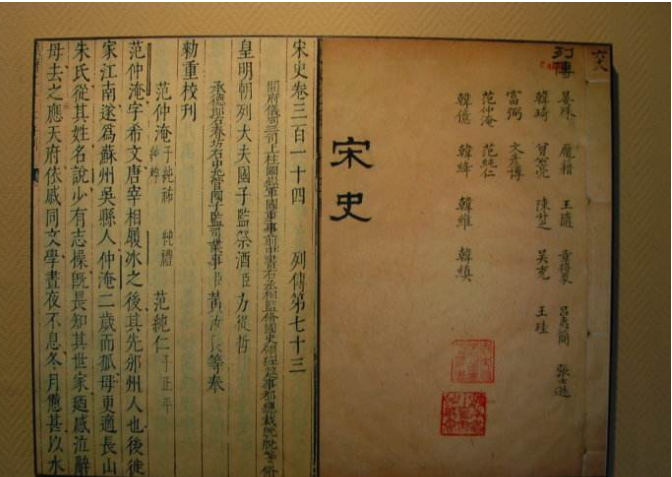 列傳
晏殊 龐籍 王隨 章得象 呂夷簡 張士遜
韓琦 曾公亮 陳升之 吳充 王珪
富弼 文彥博
范仲淹 范純仁
韓億 韓絳 韓維 韓縝
宋史
宋史卷三百一十四 列傳第七十三
開府儀同三司上柱國錄軍國重事前中書右丞相監修國史領經筵事都總裁脫脫等修
皇明朝列大夫國子監祭酒臣方從哲
承德郎右春坊右中允管國子監司業事臣黃汝良等奉
勅重校刊
范仲淹子純祐 純禮 純粹 范純仁子正平
范仲淹字希文唐宰相履冰之後其先邠州人也後徙
家江南遂爲蘇州吳縣人仲淹二歲而孤母更適長山
朱氏從其姓名說少有志操旣長知其世家廼感泣辭
母去之應天府依戚同文學晝夜不息冬月憊甚以水